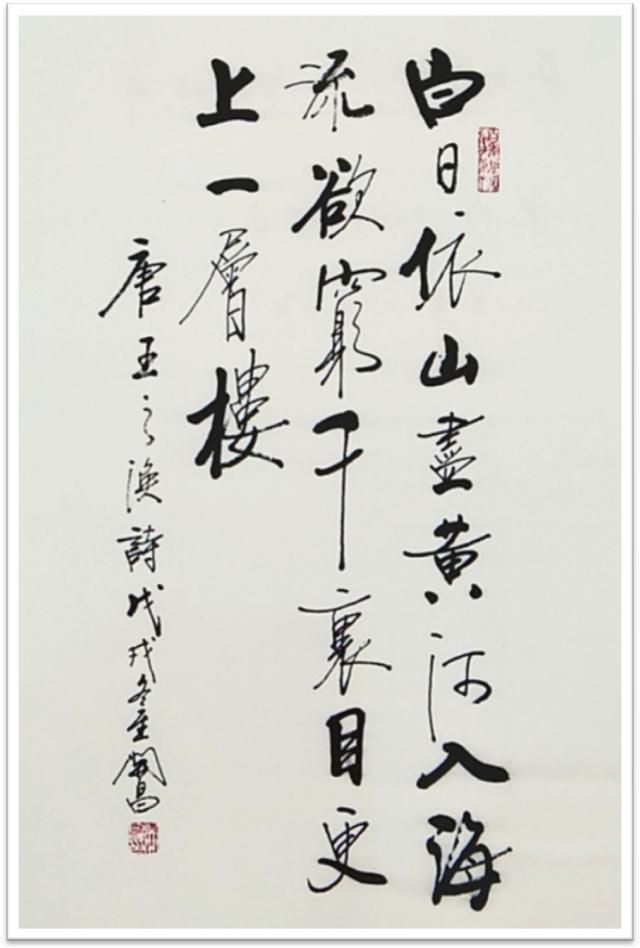 白日依山盡黄河入海
流欲窮千裏目更
上一層樓
唐王之渙詩戊戌冬至